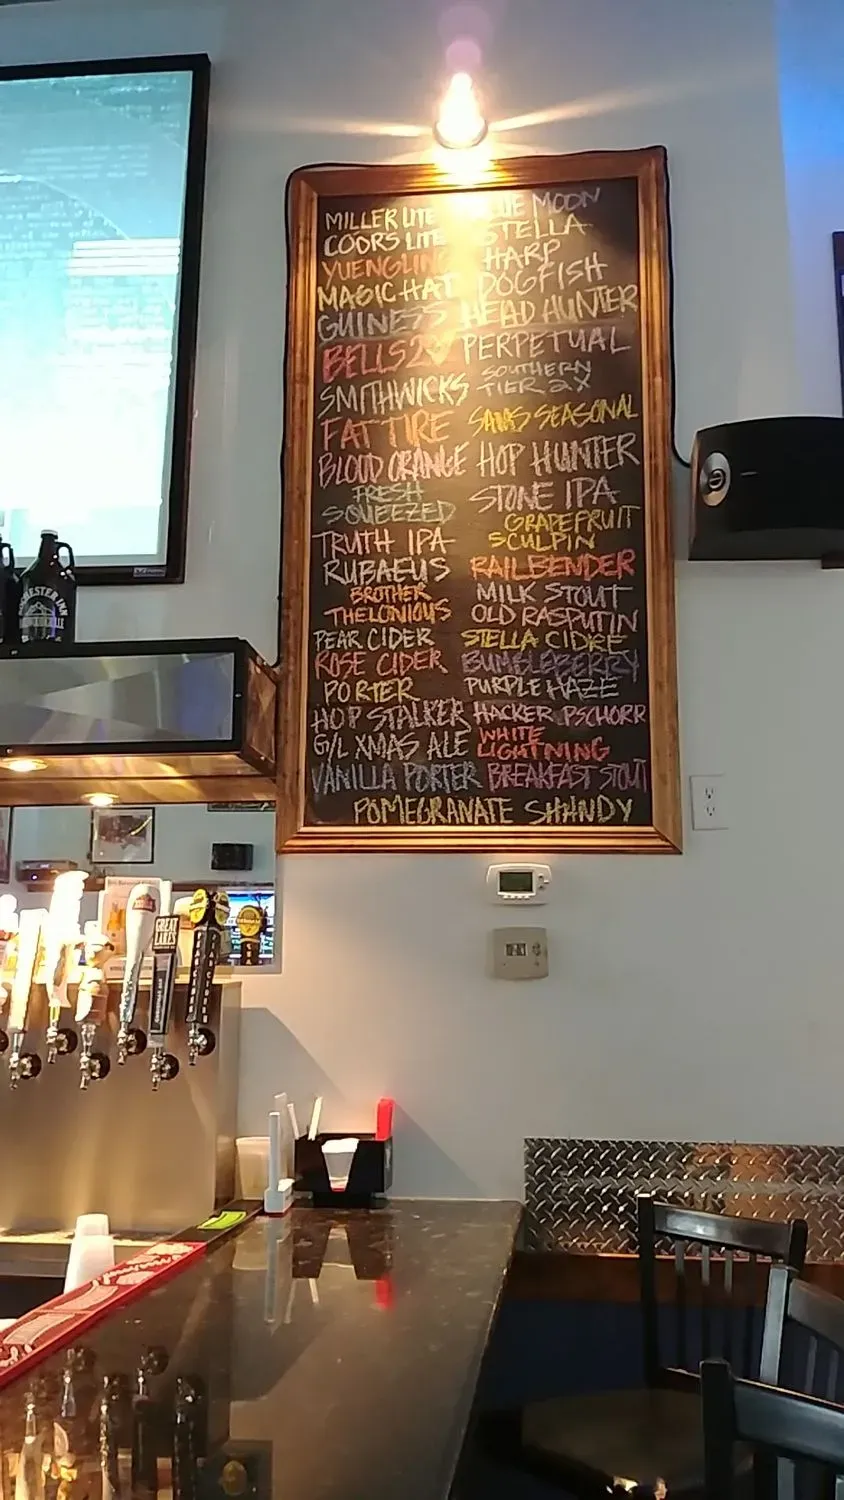 MILLER LITE
MOON
COORS LITE
STELLA
YUENGLING
HARP
MAGIC HAT
DOGFISH
GUINESS
HEAD HUNTER
BELLS
PERPETUAL
SMITHWICKS
SOUTHERN
TIER 2X
FAT TIRE
SAMS SEASONAL
BLOOD ORANGE
HOP HUNTER
FRESH
SQUEEZED
STONE IPA
GRAPEFRUIT
SCULPIN
TRUTH IPA
RUBAEUS
RAILBENDER
BROTHER
THELONIOUS
MILK STOUT
OLD RASPUTIN
PEAR CIDER
STELLA CIDRE
ROSE CIDER
BUMBLEBERRY
PORTER
PURPLE HAZE
HOP STALKER
HACKER PSCHORR
G/L XMAS ALE
WHITE
LIGHTNING
VANILLA PORTER
BREAKFAST STOUT
POMEGRANATE SHANDY
GREAT
LAKES